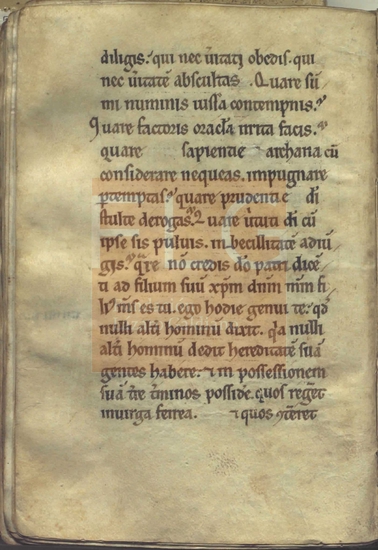 diligis. qui nec ũitati obedis. qui
nec ũitatẽ abscultas. Quare sũ
mi numinis iussa contempnis.
Quare factoris oracła irrita facis.
quare sapientie archana cũ
considerare nequeas. impugnare
ptemptas. quare prudentie di
stulte derogas. Quare ũtuti di cũ
ipse sis puluis. inbecillitatẽ adiũ
gis. qre nõ credis dõ patri dicẽ
ti ad filium suũ xpm dnm nrm fi
li ms es tu. ego hodie genui te. qd
nulli altĩ hominũ dixit. qa nulli
altĩ hominũ dedit hereditatẽ suã
gentes habere. ⁊ in possessionem
suã tre tminos posside. quos reget
inuirga ferrea. ⁊ quos ꝯteret